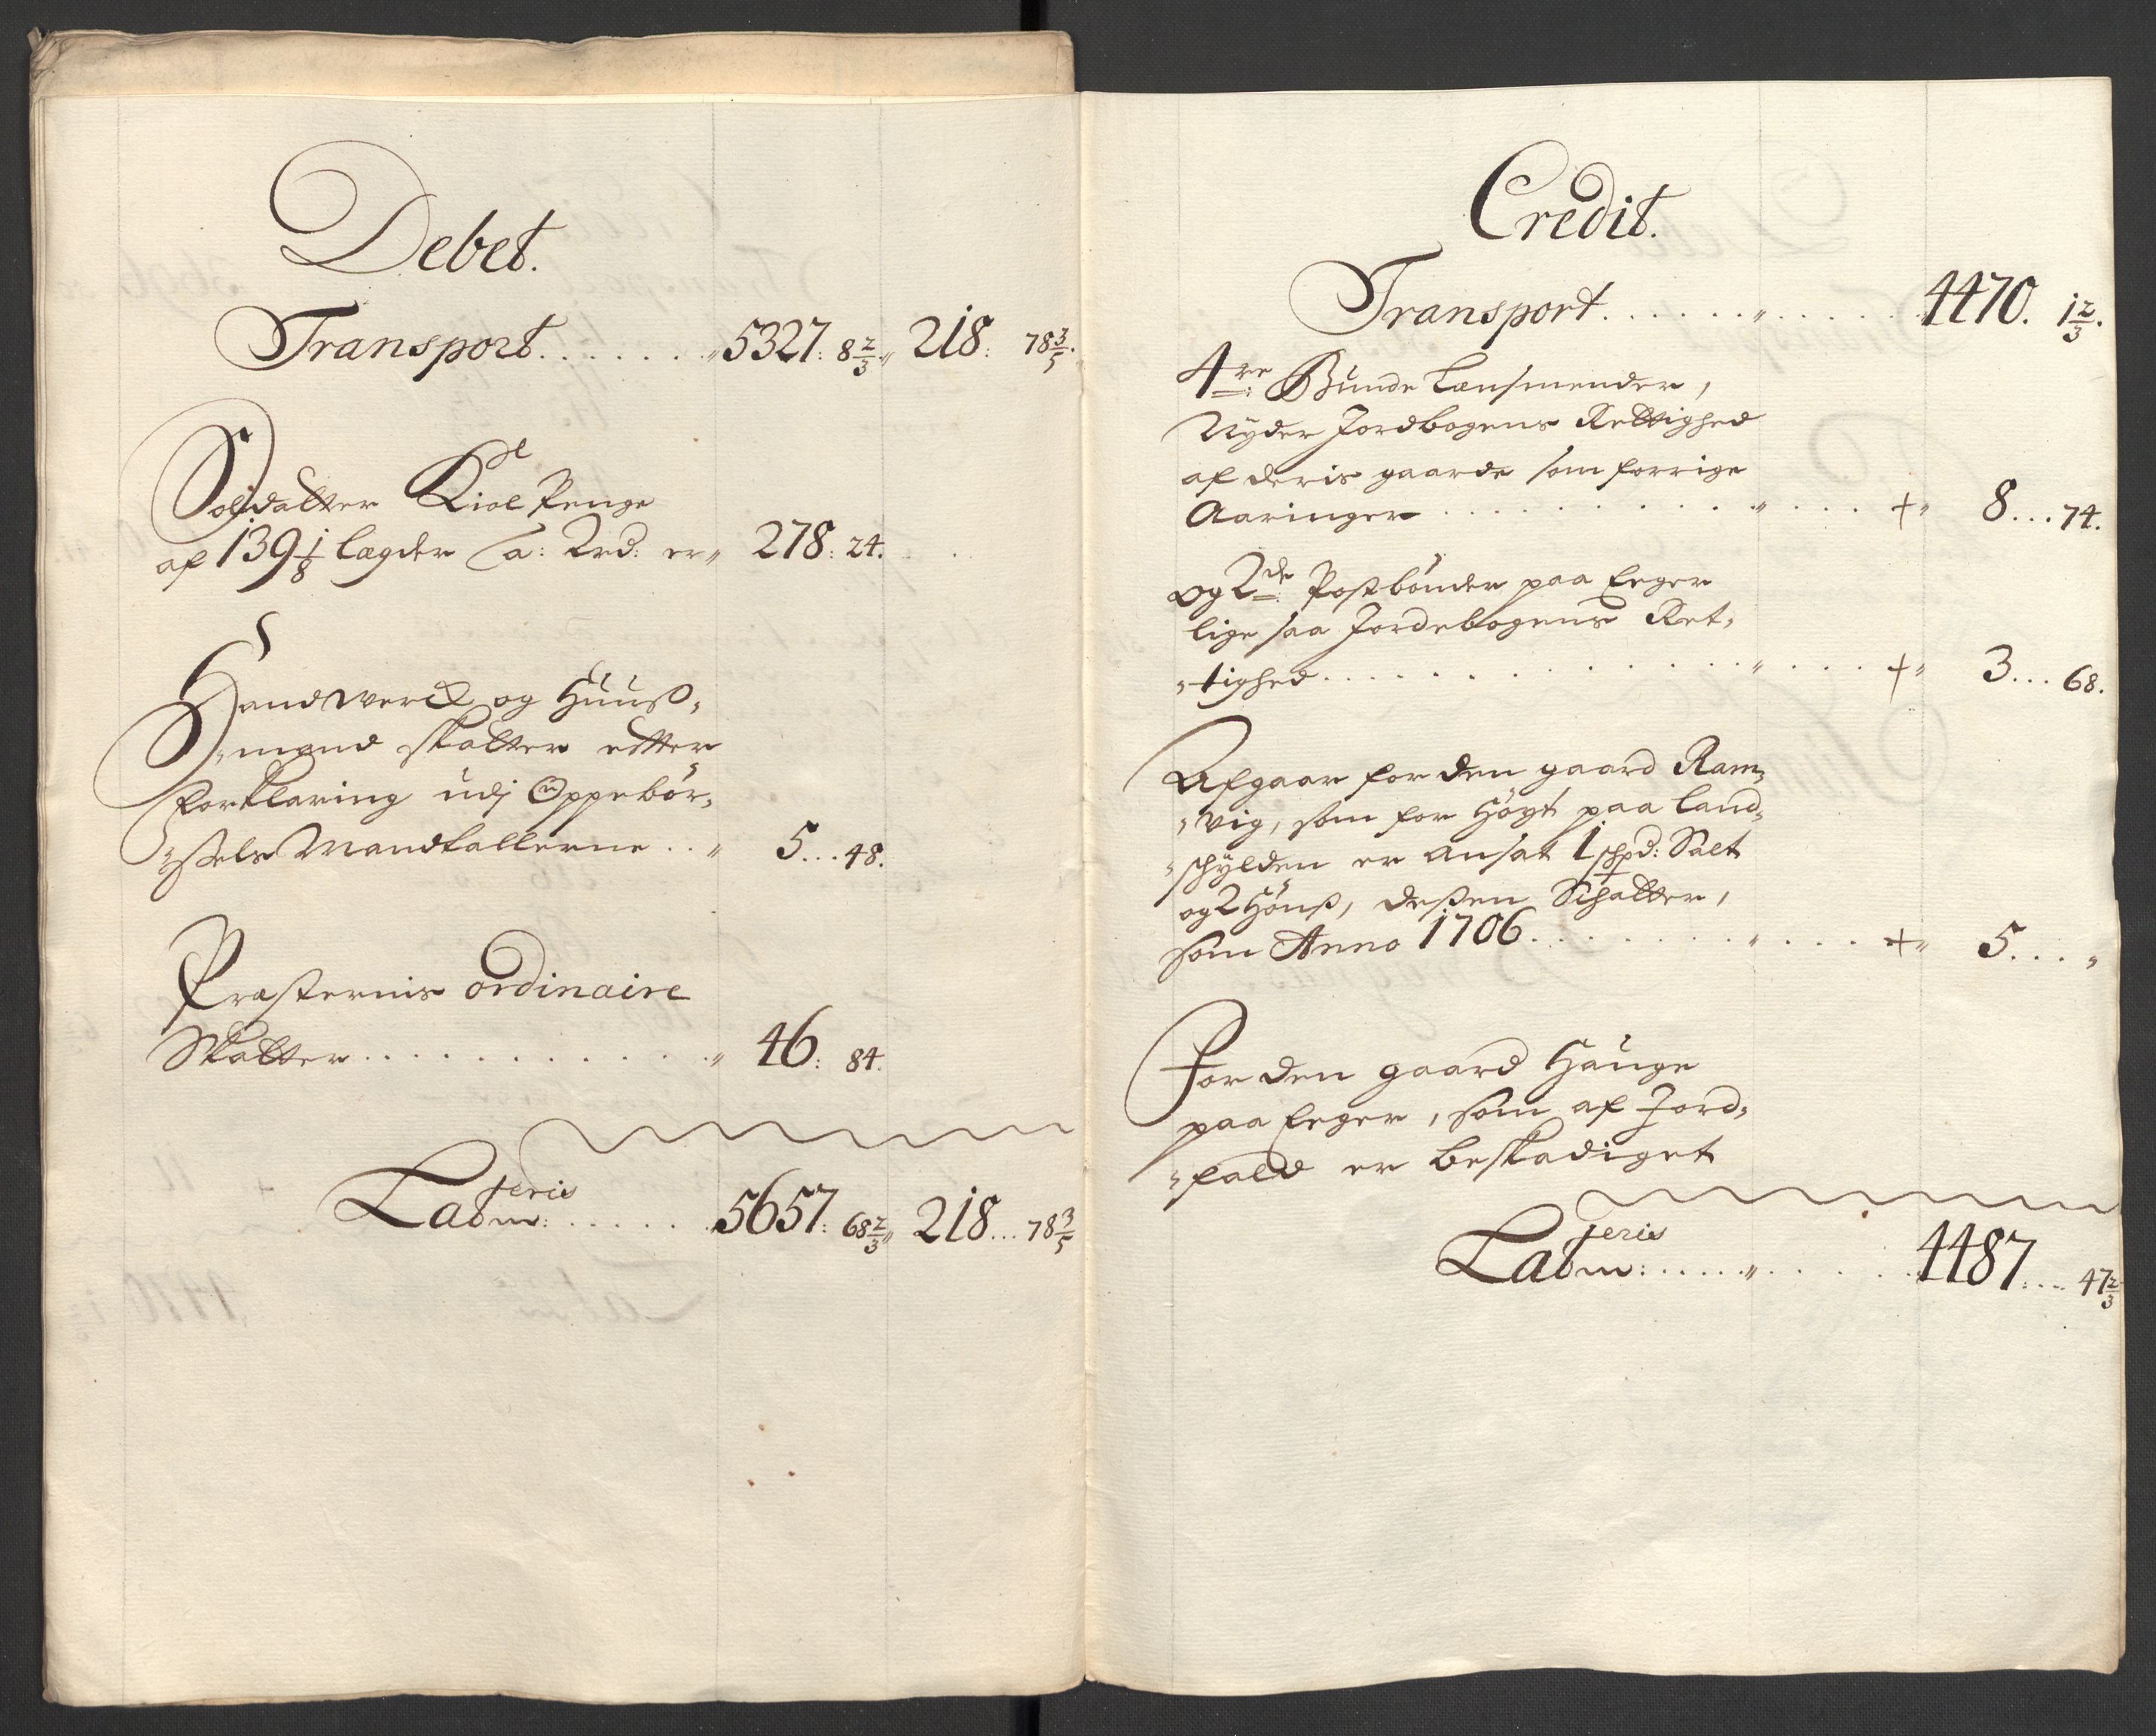 Debet.
Transport. . . . . . . „ 5327: 8 2/3 „ 218: 78 3/5.
Soldatter Kiol Penge
af 139 1/8 lægder a: 2rd: er „ 278: 24.
Handwerck og Huuss„
„mænd skatter efter
forklaring udj Oppebør„
„ssels Mandtallerne . . „ 5 . . . 48.
Præsternis ordinaire
Skatter . . . . . . . . . . . . „ 46: 84.
Lateris
m: . . . . . 5657: 68 2/3 „ 218 . . . 78 3/5
Credit.
Transport. . . . . . „ . . . . . 4470. 1 2/3.
4re: Bunde Lænsmender,
Nyder Jordbogens Rettighed
af deris gaarde som forrige
Aaringer . . . . . . . . . . . „ . . . + „ 8 . . . 74.
og 2de: Postbønder paa Eeger
lige saa Jordebogens Ret„
„tighed . . . . . . . . . . . . „ . . . + „ 3 . . . 68.
Afgaar for den gaard Ram„
„vig, som for høyt paa land„
„schylden er ansat 1 schpd: Salt
og 2 Høns, dessen Schatter,
som Anno 1706 . . . . . . . . „ . . . + „ 5 . . . „
For den gaard Hauge
paa Eeger, som af Jord„
„fald er beskadiget
Lateris
m: . . . . . „ . . . . . 4487: . . . 47 2/3